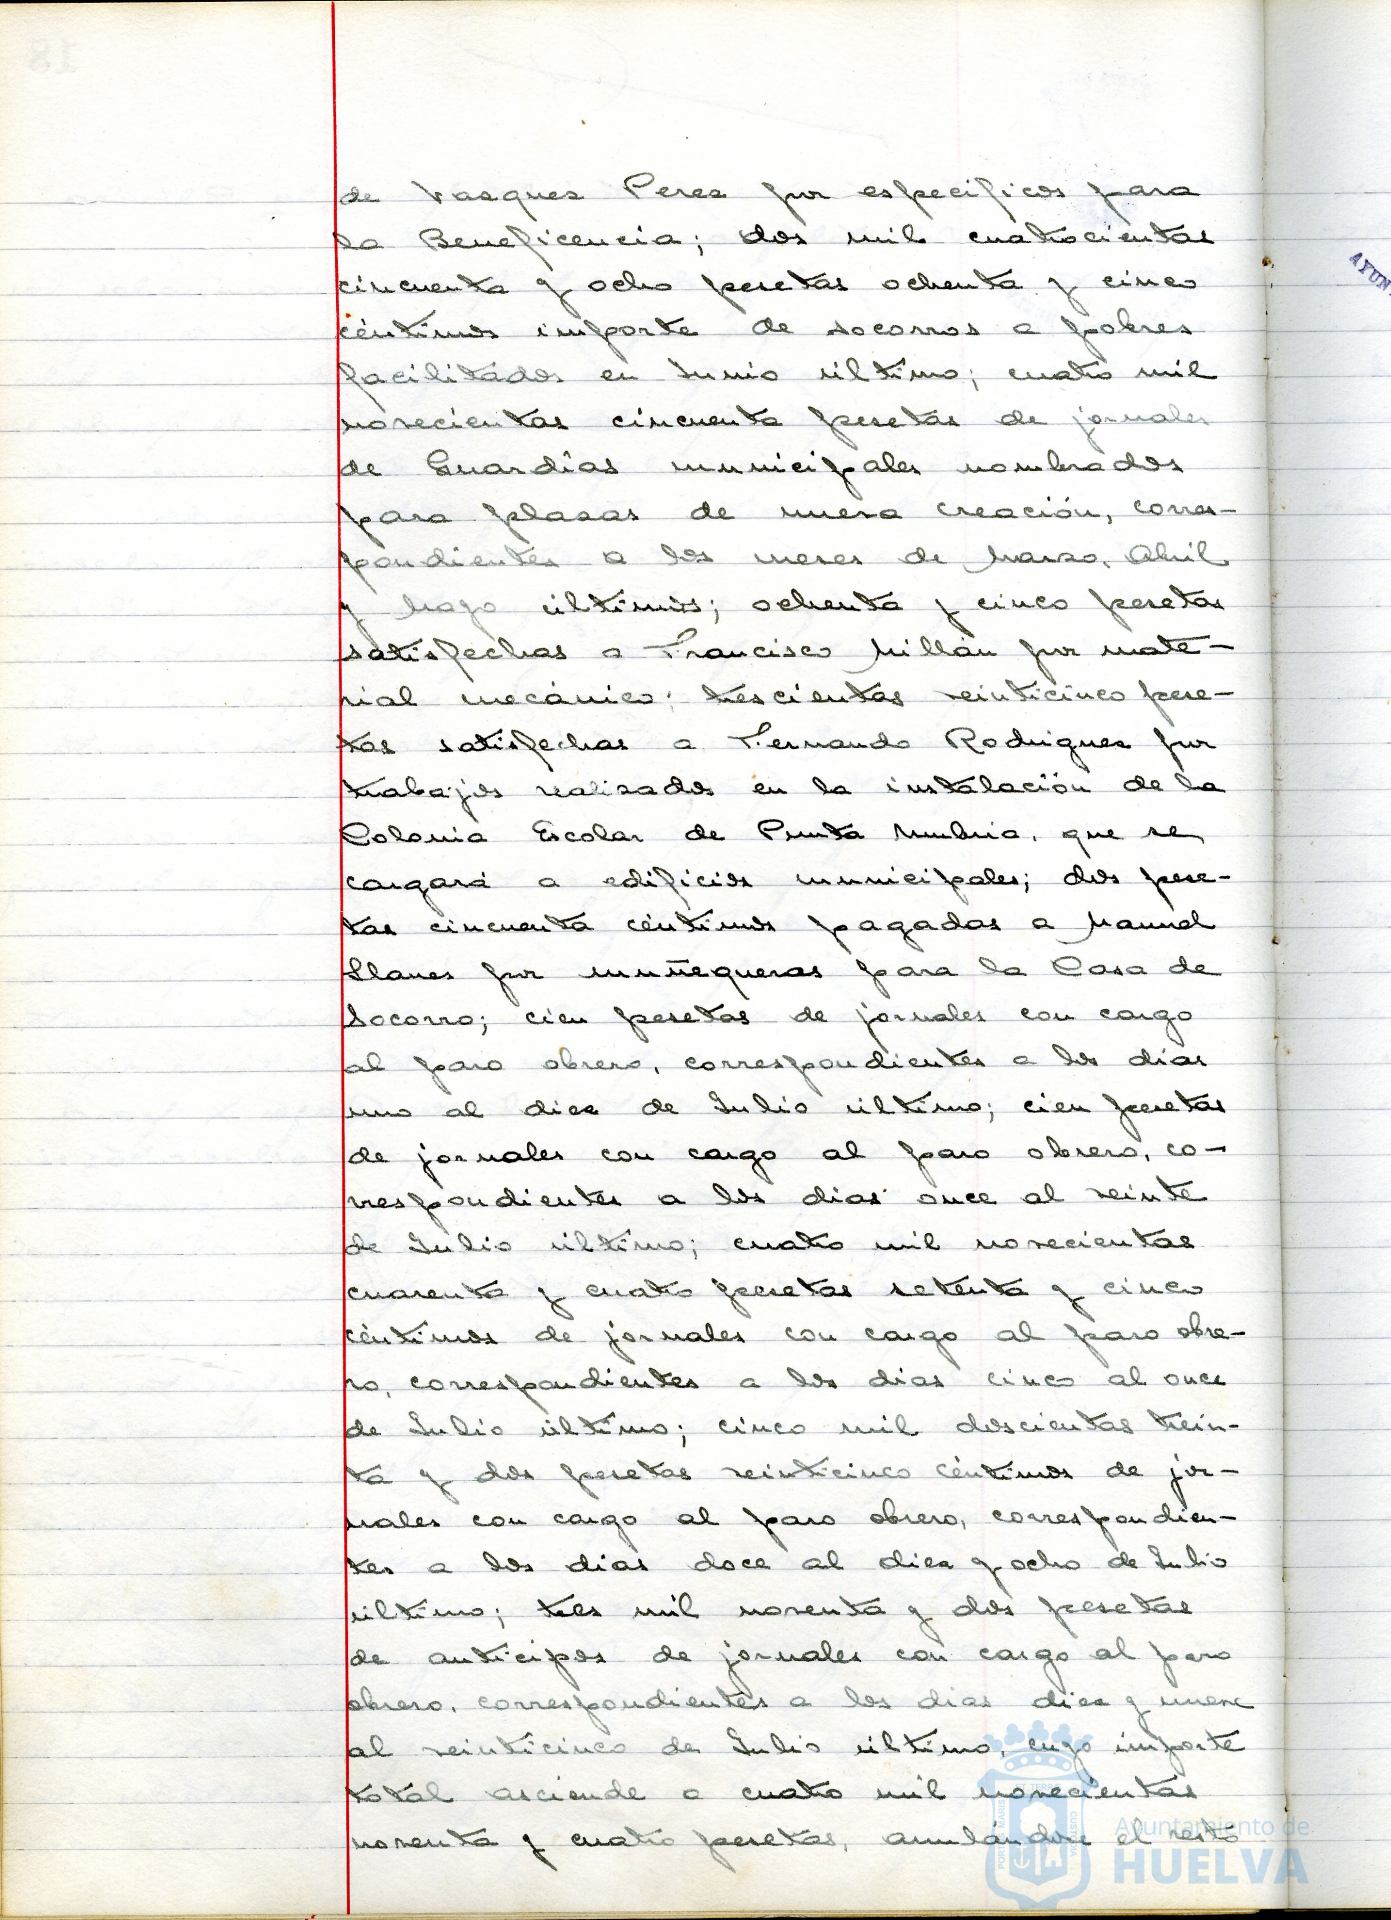 de Vasques Peres por específicos para
la Beneficencia; dos mil cuatrocientas
cincuenta y ocho pesetas ochenta y cinco
céntimos importe de socorros a pobres
facilitados en Junio último; cuatro mil
novecientas cincuenta pesetas de jornales
de Guardias municipales nombrados
para plasas de nueva creación, corres-
pondientes a los meses de Marzo, Abril
y Mayo últimos; ochenta y cinco pesetas
satisfechas a Francisco Millán por mate-
rial mecánico; trescientas veinticinco pese-
tas satisfechas a Fernando Rodrigues por
trabajos realisados en la instalación de la
Colonia Escolar de Punta Umbria, que se
cargará a edificios municipales; dos pese-
tas cincuenta céntimos pagadas a Manuel
Llanes por muñequeras para la Casa de
Socorro; cien pesetas de jornales con cargo
al paro obrero, correspondientes a los días
uno al dies de Julio último; cien pesetas
de jornales con cargo al paro obrero, co-
rrespondientes a los dias once al veinte
de Julio último; cuatro mil novecientas
cuarenta y cuatro pesetas setenta y cinco
céntimos de jornales con cargo al paro obre-
ro, correspondientes a los dias cinco al once
de Julio último; cinco mil doscientas trein-
ta y dos pesetas veinticinco céntimos de jor-
nales con cargo al paro obrero, correspondien-
tes a los dias doce al dies y ocho de Julio
último; tres mil noventa y dos pesetas
de anticipos de jornales con cargo al paro
obrero, correspondientes a los dias dies y nueve
al veinticinco de Julio último, cuyo importe
total asciende a cuatro mil novecientas
noventa y cuatro pesetas, anulandose el resto
AYUN
Ayuntamiento de
HUELVA